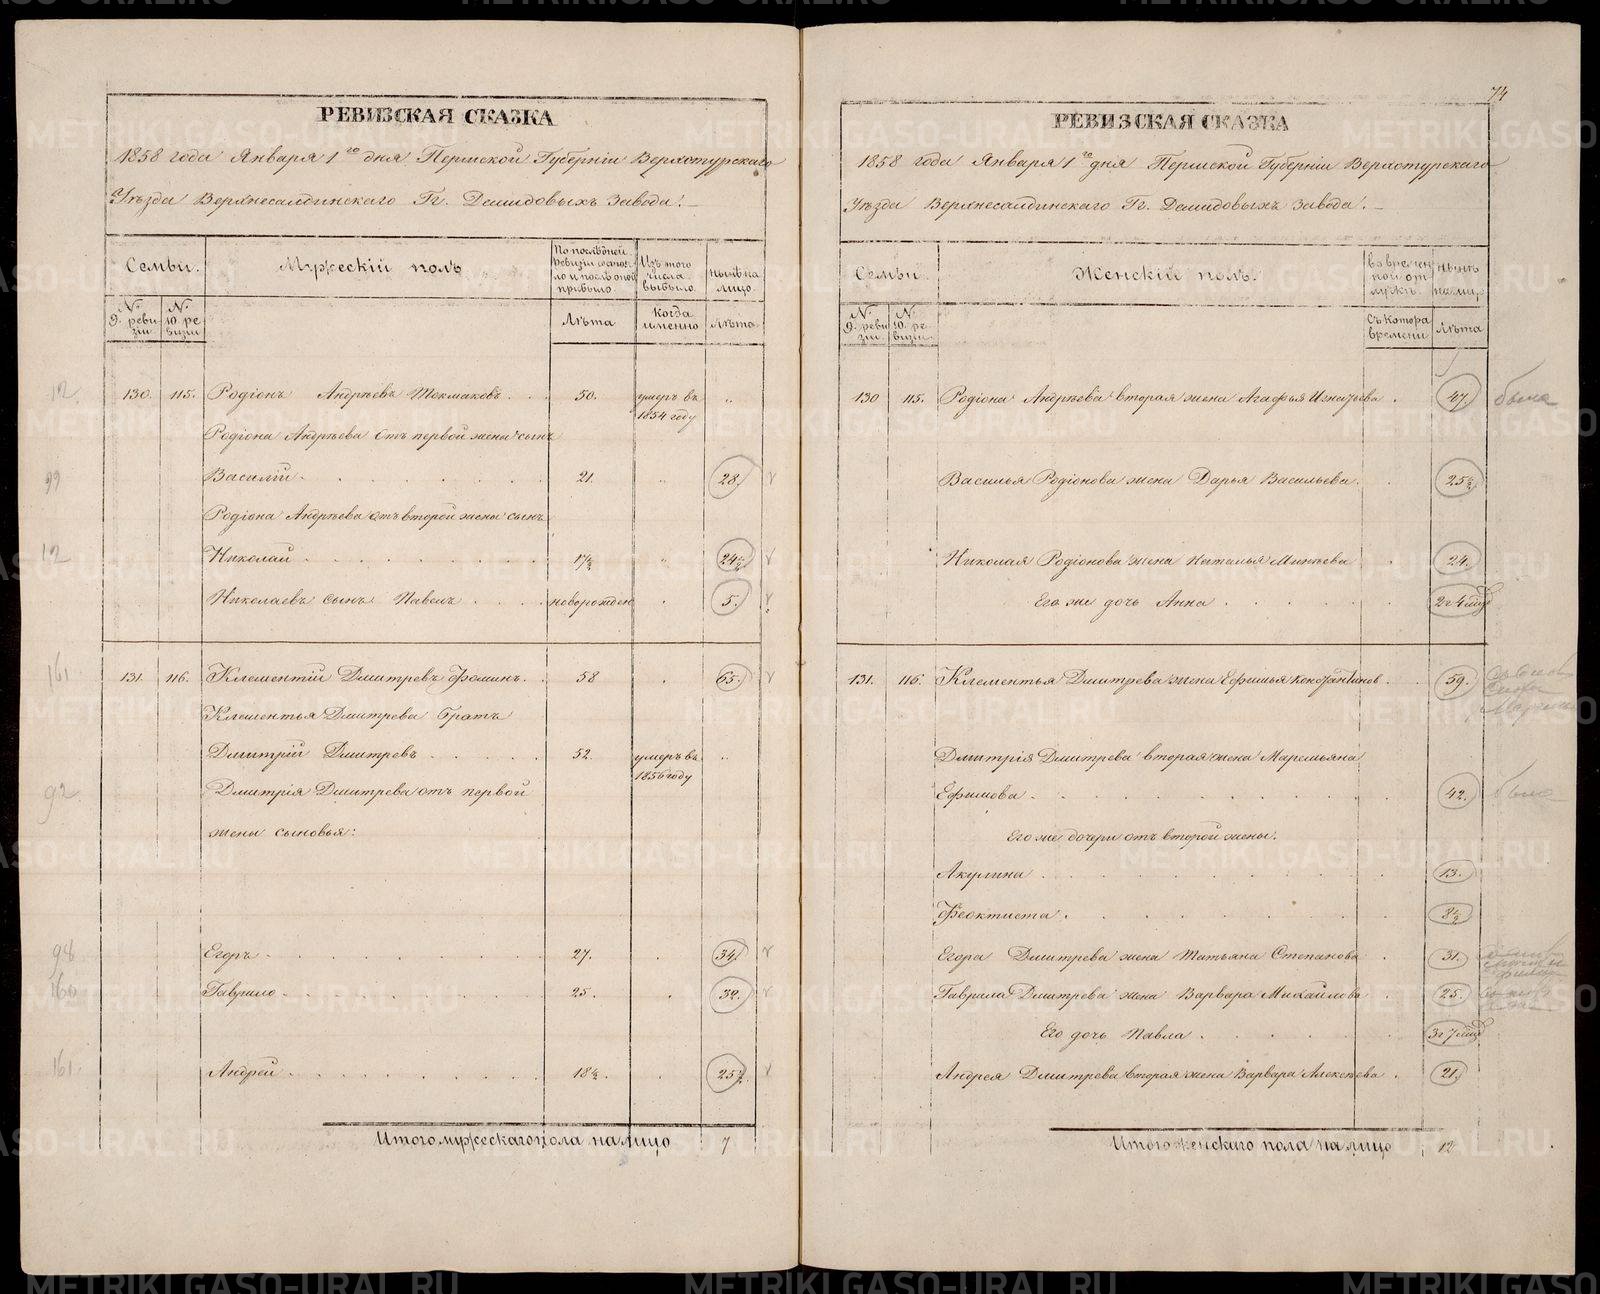 РЕВИЗСКАЯ СКАЗКА
1858 года Января 1го дня Пермской Губерніи Верхотурскаго
Уѣзда Верхнесалдинскаго Гг. Демидовыхъ Завода.
Семьи.
Мужескій полъ
По послѣдней ревизіи состояло и послѣ оной прибыло.
Изъ того числа выбыло.
Нынѣ на лицо.
№ 9. ревизіи
№ 10. ревизіи
Лѣта
Когда именно
Лѣта
12
130. 115. Родіонъ Андрѣевъ Токмаковъ . . . 50. умеръ въ 1854 году „
Родіона Андрѣева отъ первой жены сынъ
99
Василій . . . . . . . 21. „ 28.
Родіона Андрѣева отъ второй жены сынъ
12
Николай . . . . . . . 17½ „ 24½
Николаевъ сынъ Павелъ . . . . новорожден . 5.
161
131. 116. Клементій Дмитревъ Фоминъ . . 58 . 65.
Клементья Дмитрева братъ
Дмитрій Дмитревъ . . . . . 52. умеръ въ 1856 году „
92
Дмитрія Дмитрева отъ первой
жены сыновья:
98
Егоръ . . . . . . . . 27. . 34.
160
Гаврило . . . . . . . . 25. . 32.
161.
Андрей . . . . . . . . 18½. . 25½
Итого мужескаго пола на лицо 7
74
РЕВИЗСКАЯ СКАЗКА
1858 года Января 1го дня Пермской Губерніи Верхотурскаго
Уѣзда Верхнесалдинскаго Гг. Демидовыхъ Завода.
Семьи.
Женскій полъ.
Во временной отлучкѣ.
Нынѣ на лицо
№ 9. ревизіи
№ 10. ревизіи.
Съ котора времени
Лѣта
130 115. Родіона Андрѣева вторая жена Агафья Игнатьева . 47. была
Василья Родіонова жена Дарья Васильева. . 25½
Николая Родіонова жена Наталья Минѣева . 24.
Его же дочь Анна . . . . . . 2 г 4 мѣс
131. 116. Клементья Дмитрева жена Ефимья Константинов . . 59.
Дмитрія Дмитрева вторая жена Маремьяна
Ефимова . . . . . . . . 42. была
Его же дочери отъ второй жены.
Акулина . . . . . . . . 13.
Феоктиста . . . . . . . . 8½
Егора Дмитрева жена Татьяна Степанова . 31.
Гаврила Дмитрева жена Варвара Михайлова . 25.
Его дочь Павла . . . . . . 3 г 7 мѣс
Андрея Дмитрева вторая жена Варвара Алексѣева . 21.
Итого женскаго пола на лицо 12
METRIKI.GASO-URAL.RU